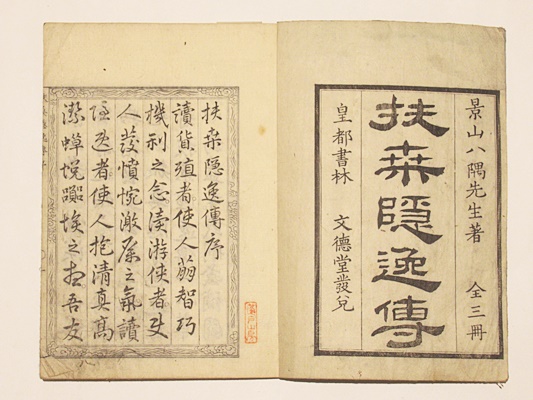 景山八隅先生著 全三冊
扶桒隱逸傳
皇都書林 文德堂發兌
扶桒隱逸傳序
讀貨殖者使人萌智巧
機利之念讀游侠者使
人發憤惋激厲之氣讀
隱逸者使人抱清真高
潔蟬蛻埃之想吾友